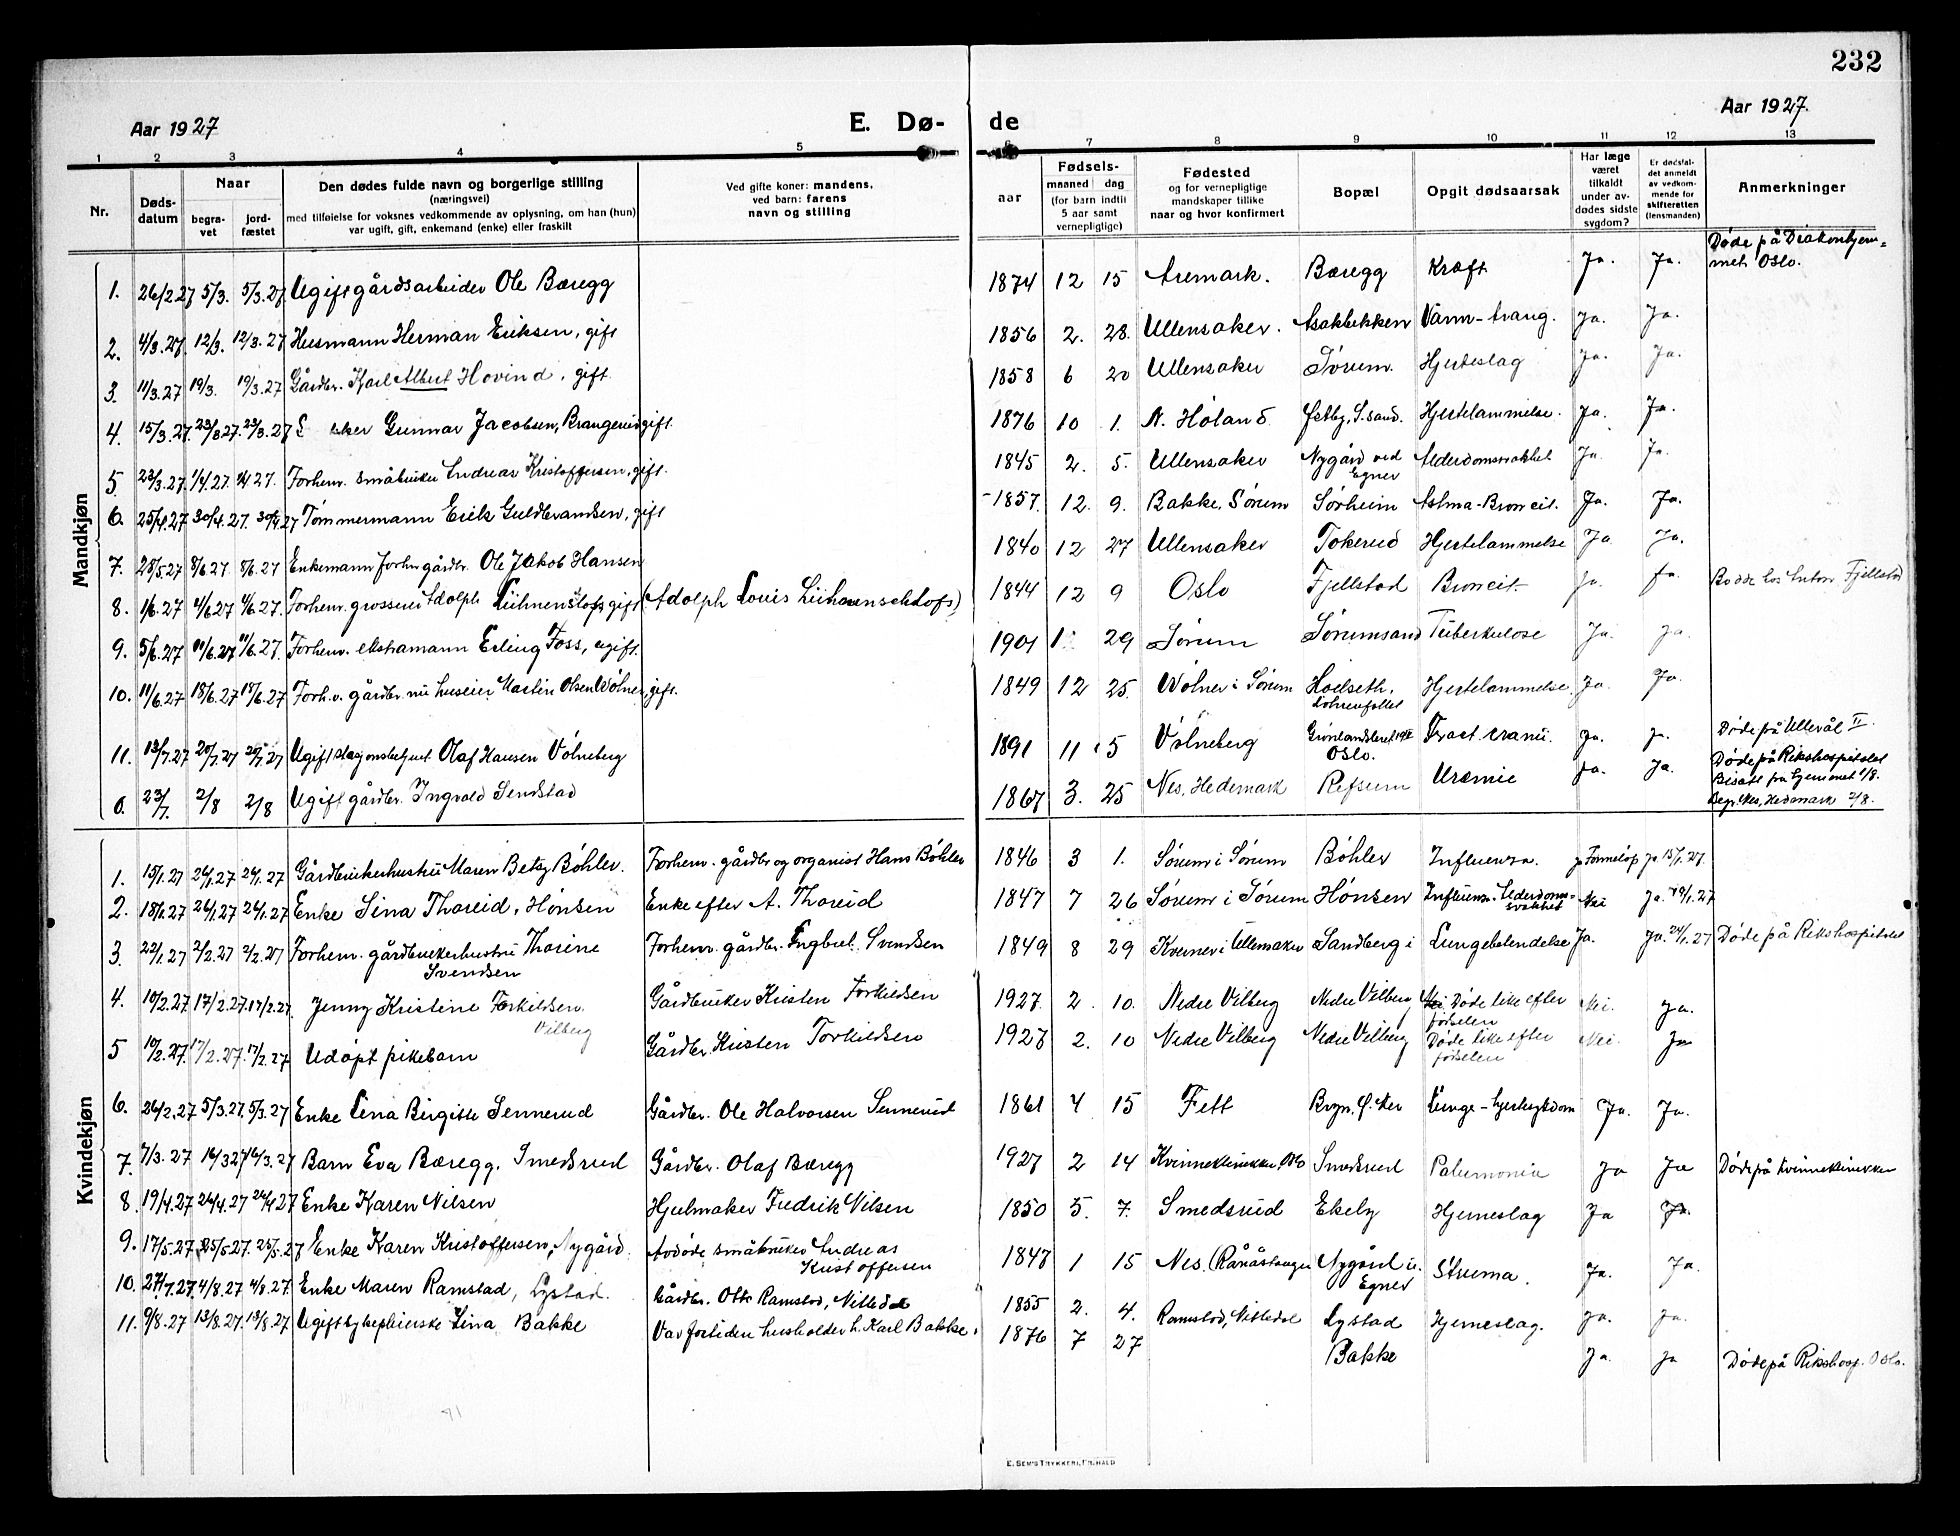 232
Aar 1927
E. Dø-
de
Aar 1927.
1 2 3 4 5 6 7 8 9 10 11 12 13
Nr.
Døds-
datum
Naar
begra-
vet
jord-
fæstet
Den dødes fulde navn og borgerlige stilling
(næringsvei)
med tilføielse for voksnes vedkommende av oplysning, om han (hun)
var ugift, gift, enkemand (enke) eller fraskilt
Ved gifte koner: mandens,
ved barn: farens
navn og stilling
Fødsels-
aar
maaned dag
(for barn indtil
5 aar samt
vernepligtige)
Fødested
og for vernepligtige
mandskaper tillike
naar og hvor konfirmert
Bopæl
Opgit dødsaarsak
Har læge
været
tilkaldt
under av-
dødes sidste
sygdom?
Er dødsfal-
det anmeldt
av vedkom-
mende for
skifteretten
(lensmanden)
Anmerkninger
Mandkjøn
1. 26/2.27 5/3. 5/3.27 Ugift gårdsarbeider Ole Bæregg 1874 12 15 Aremark. Bæregg Kræft Ja. Ja. Døde på Diakonhjem-
met Oslo.
2. 4/3.27 12/3. 12/3.27 Husmann Herman Eriksen, gift 1856 2. 28. Ullensaker. Asakbekken Ja. Ja.
3. 11/3.27 19/3. 19/3.27 Gårdbr. Karl Albert Hovind, gift. 1858 6 20 Ullensaker Sørum. Hjerteslag Ja. Ja.
4. 15/3.27. 23/3.27. 23/3.27 Gunnar Jacobsen, Brangerud gift. 1876 10 1. N. Høland Hjertelammelse. Ja. Ja.
5 23/3.27. 1/4.27. 1/4 27. Forhenv. småbruker Andreas Kristoffersen, gift. 1845 2. 5. Ullensaker Nygård ved
Egner Alderdomssvakhet Ja. Ja.
6. 25/4.27 30/4.27. 30/4.27 Tømmermann Erik Guldbrandsen, gift 1857. 12. 9. Bakke, Sørum Sørheim Astma-Bronkit. Ja. Ja.
7. 28/5.27 8/6.27. 8/6.27 Enkemann forhv. gårdbr. Ole Jakob Hansen 1840 12 27 Ullensaker Tokerud Hjertelammelse Ja Ja.
8. 1/6.27 4/6.27 4/6.27. Forhenv. grosserer Adolph gift (Adolph Louis 1844 12 9 Oslo Fjellstad Bronkit. Ja. Ja. Bodde hos Anton Fjellstad
9. 5/6.27 11/6.27 11/6.27. Forhenv. ekstramann Erling Foss, ugift. 1901 1 29 Sørum Sørumsand Tuberkulose Ja. Ja.
10. 11/6.27 18/6.27 18/6.27 Forh.v. gårdbr. nu huseier Martin Olsen Wølner, gift. 1849 12 25. Wølner i Sørum Hjertelammelse. Ja. Ja.
11. 13/7.27 20/7.27 20/7.27 Ugift Olaf Hansen Vølneberg 1891 11 5 Vølneberg Grønlandsleret
Oslo. Fract. cranii. Ja. Ja. Døde på Ullevål II.
0. 23/7. 2/8 2/8 Ugift gårdbr. Ingvald Sendstad 1867 3. 25 Nes, Hedemark Refsum Uræmie Ja. Ja. Døde på Rikshospitalet
Bisatt fra hjemmet 1/8.
Begr. Nes, Hedemark 2/8.
Kvindekjøn
1. 15/1.27 24/1.27 24/1.27 Gårdbrukerhustru Maren Betzy Bøhler. Forhenv. gårdbr og organist Hans Bøhler 1846 3 1. Sørum i Sørum Bøhler Influensa. ja 15/1.27.
2. 18/1.27 24/1.27 24/1.27 Enke Lina Thorud, Hønsen Enke efter A. Thorud 1847 7 26 Sørum i Sørum Hønsen Influensa. Alderdoms-
svakhet Nei Ja. 19/1.27
3. 22/1.27 2/2.27 2/2.27 Forhenv. gårdbrukerhustru Thorine
Svendsen Forhenv. gårdbr. Ingbret Svendsen 1849 8 29 Kverner i Ullensaker Sandberg i Lungebetendelse Ja. Ja. 24/1.27 Døde på Rikshospitalet
4. 10/2.27 17/2.27. 17/2.27. Jenny Kristine Torkildsen.
Vilberg Gårdbruker Kristen Torkildsen 1927. 2. 10. Nedre Vilberg Nedre Vilberg Døde like efter
fødselen Nei. ja.
5 10/2.27. 17/2.27. 17/2.27 Udøpt pikebarn Gårdbr. Kristen Torkildsen 1927 2. 10 Nedre Vilberg Nedre Vilberg Døde like efter
fødselen Nei. Ja
6. 26/2.27 5/3.27. 5/3.27 Enke Lina Birgitte Sennerud Gårdbr. Ole Halvorsen Sennerud 1861 4 15 Fett Lunge-hjertesykdom Ja. Ja.
7. 7/3.27 16/3 27 16/3.27 Barn Eva Bæregg. Smedsrud Gårdbr. Olaf Bæregg 1927 2 14 Kvinneklinikken, Oslo Smedsrud Ja Ja Døde på kvinneklinikken
8. 19/4.27 24/4.27 24/4 27 Enke Karen Nilsen Hjulmaker Fredrik Nilsen 1850 5. 7. Smedsrud Ekeby Hjerneslag Ja Ja.
9. 17/5.27 25/5.27. 25/5.27 Enke Karen Kristoffersen, Nygård. Avdøde småbruker Andreas
Kristoffersen 1847 1 15 Nes. Nygård u.
Egner Struma. Ja. Ja.
10. 27/7.27. 4/8.27 4/8.27. Enke Maren Ramstad, Lystad. Gårdbr. Otto Ramstad, Nittedal 1855 2. 4. Ramstad, Nittedal Lystad Hjerneslag. Ja. Ja.
11. 9/8.27 13/8.27. 13/8.27 Ugift sykepleierske Lina Bakke Var fortiden husholder h. Karl Bakke. 1876 7 27 Bakke Ja. Ja Døde på Rikshosp. Oslo.
E. Sem's Trykkeri, Fr.hald